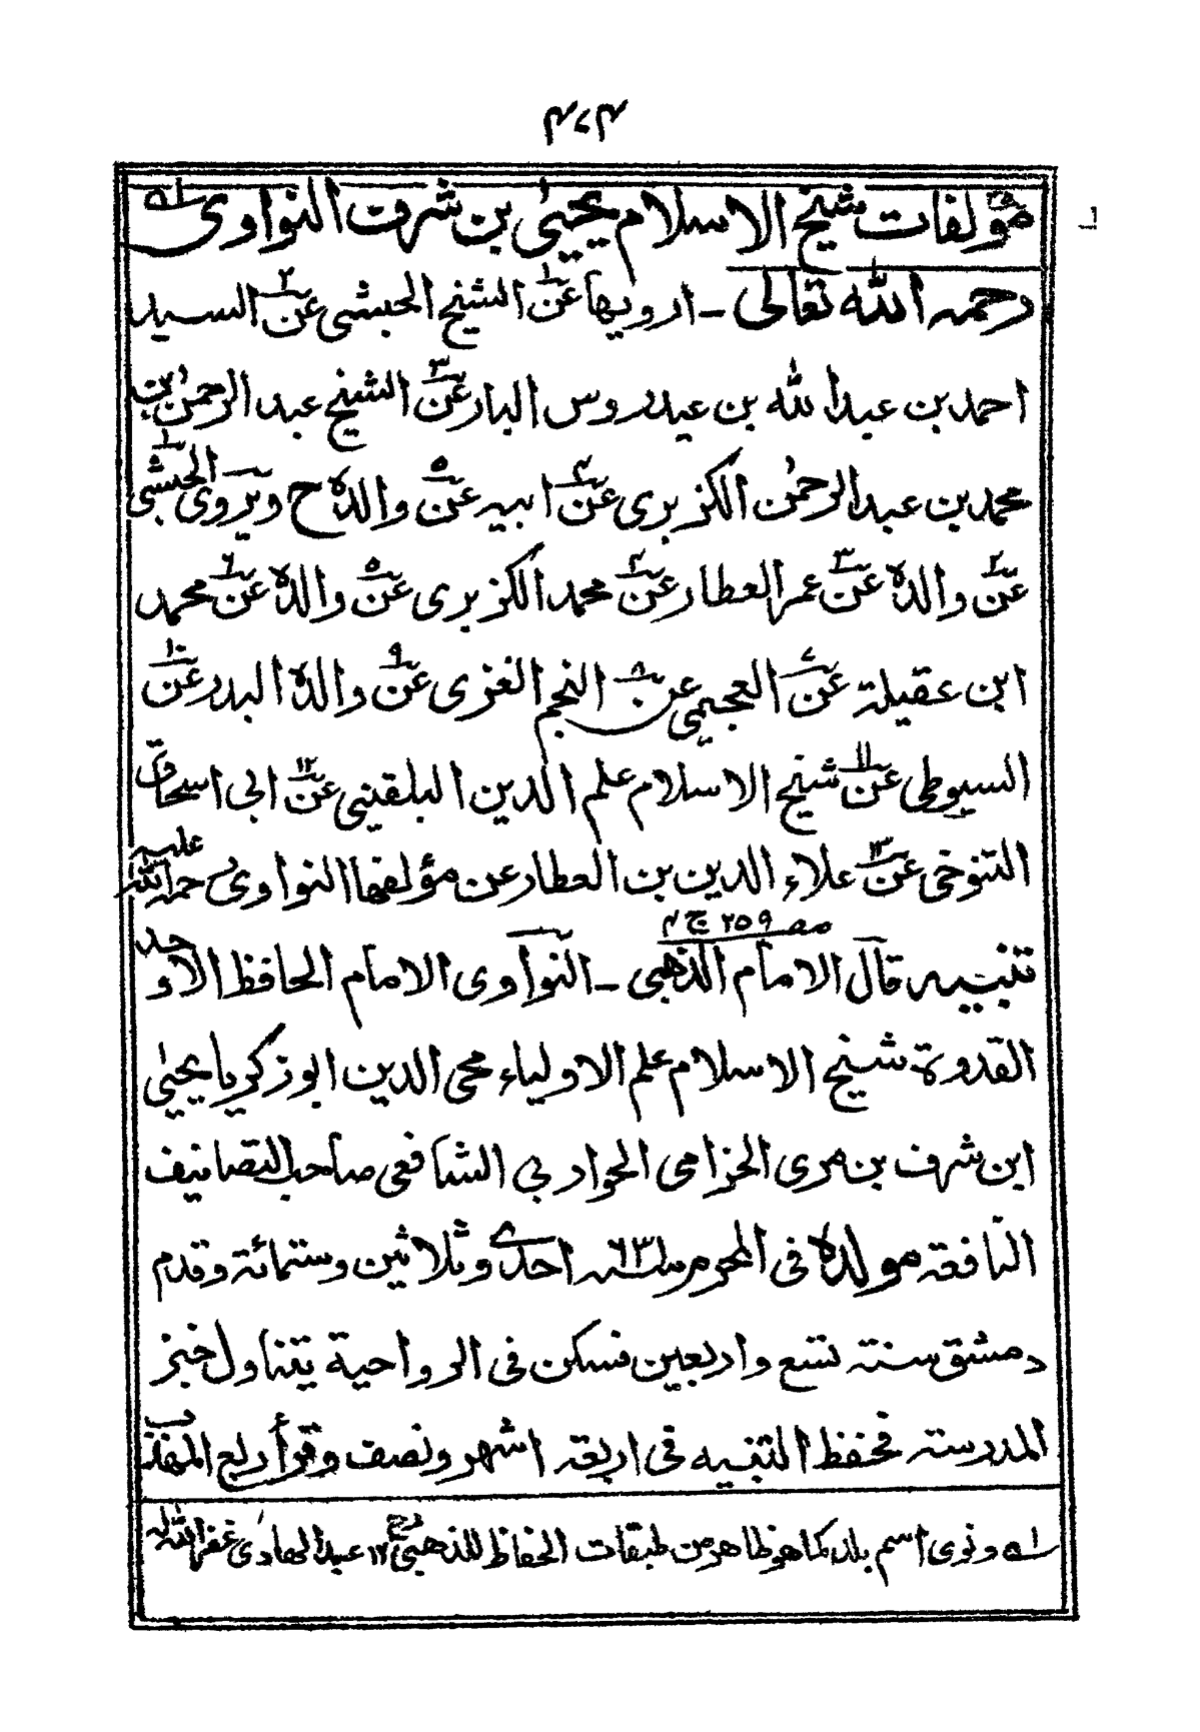 ٤٧٤
مؤلفات شيخ الاسلام يحيىٰ بن شرف النواوى ؎١
رحمه الله تعالى ـ ارويها عن١ الشيخ الحبشى عن٢ السيد
احمد بن عبد الله بن عيدروس البار عن٣ الشيخ عبد الرحمٰن بن
محمد بن عبد الرحمٰن الكزبرى عن٤ ابيه عن٥ والده ح ويروى الحبشى١
عن٢ والده عن٣ عمر العطار عن٤ محمد الكزبرى عن٥ والده عن٦ محمد
ابن عقيلة عن٧ العجيمى عن٨ النجم الغزى عن٩ والده البدر عن١٠
السيوطى عن١١ شيخ الاسلام علم الدين البلقينى عن١٢ ابى اسحاق
التنوخى عن١٣ علاء الدين بن العطار عن مؤلفها النواوى رحمة الله عليه
صـ ٢٥٩ ج ٤
تنبيه قال الامام الذهبى ـ النواوى الامام الحافظ الاوحد
القدوة شيخ الاسلام علم الاولياء محى الدين ابو زكريا يحيىٰ
ابن شرف بن مرى الحزامى الحواربى الشافعى صاحب التصانيف
النافعة مولده فى المحرم سنة ٦٣١ احدى وثلاثين وستمائة وقدم
دمشق سنة تسع واربعين فسكن فى الرواحية يتناول خبز
المدرسة فحفظ التنبيه فى اربعة اشهر ونصف وقرأ ربع المهذب
؎١ ونوى اسم بلد كما هو ظاهر من طبقات الحفاظ للذهبى ١٢ عبد الهادى غفر الله له